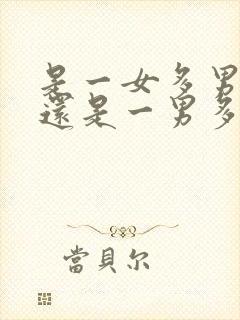 是一女多男
還是一男多
當貝尔